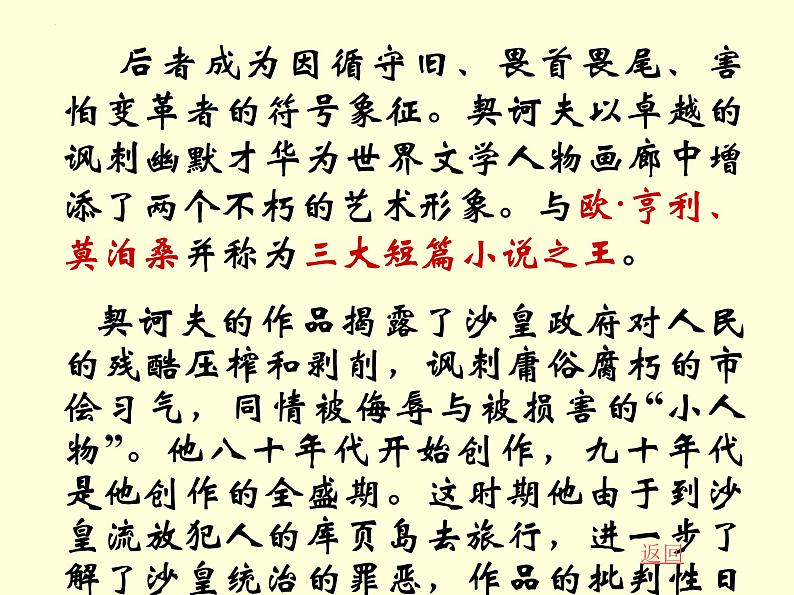 后者成为因循守旧、畏首畏尾、害
怕变革者的符号象征。契诃夫以卓越的
讽刺幽默才华为世界文学人物画廊中增
添了两个不朽的艺术形象。与欧·亨利、
莫泊桑并称为三大短篇小说之王。
契诃夫的作品揭露了沙皇政府对人民
的残酷压榨和剥削，讽刺庸俗腐朽的市
侩习气，同情被侮辱与被损害的“小人
物”。他八十年代开始创作，九十年代
是他创作的全盛期。这时期他由于到沙
皇流放犯人的库页岛去旅行，进一步了
返回
解了沙皇统治的罪恶，作品的批判性日